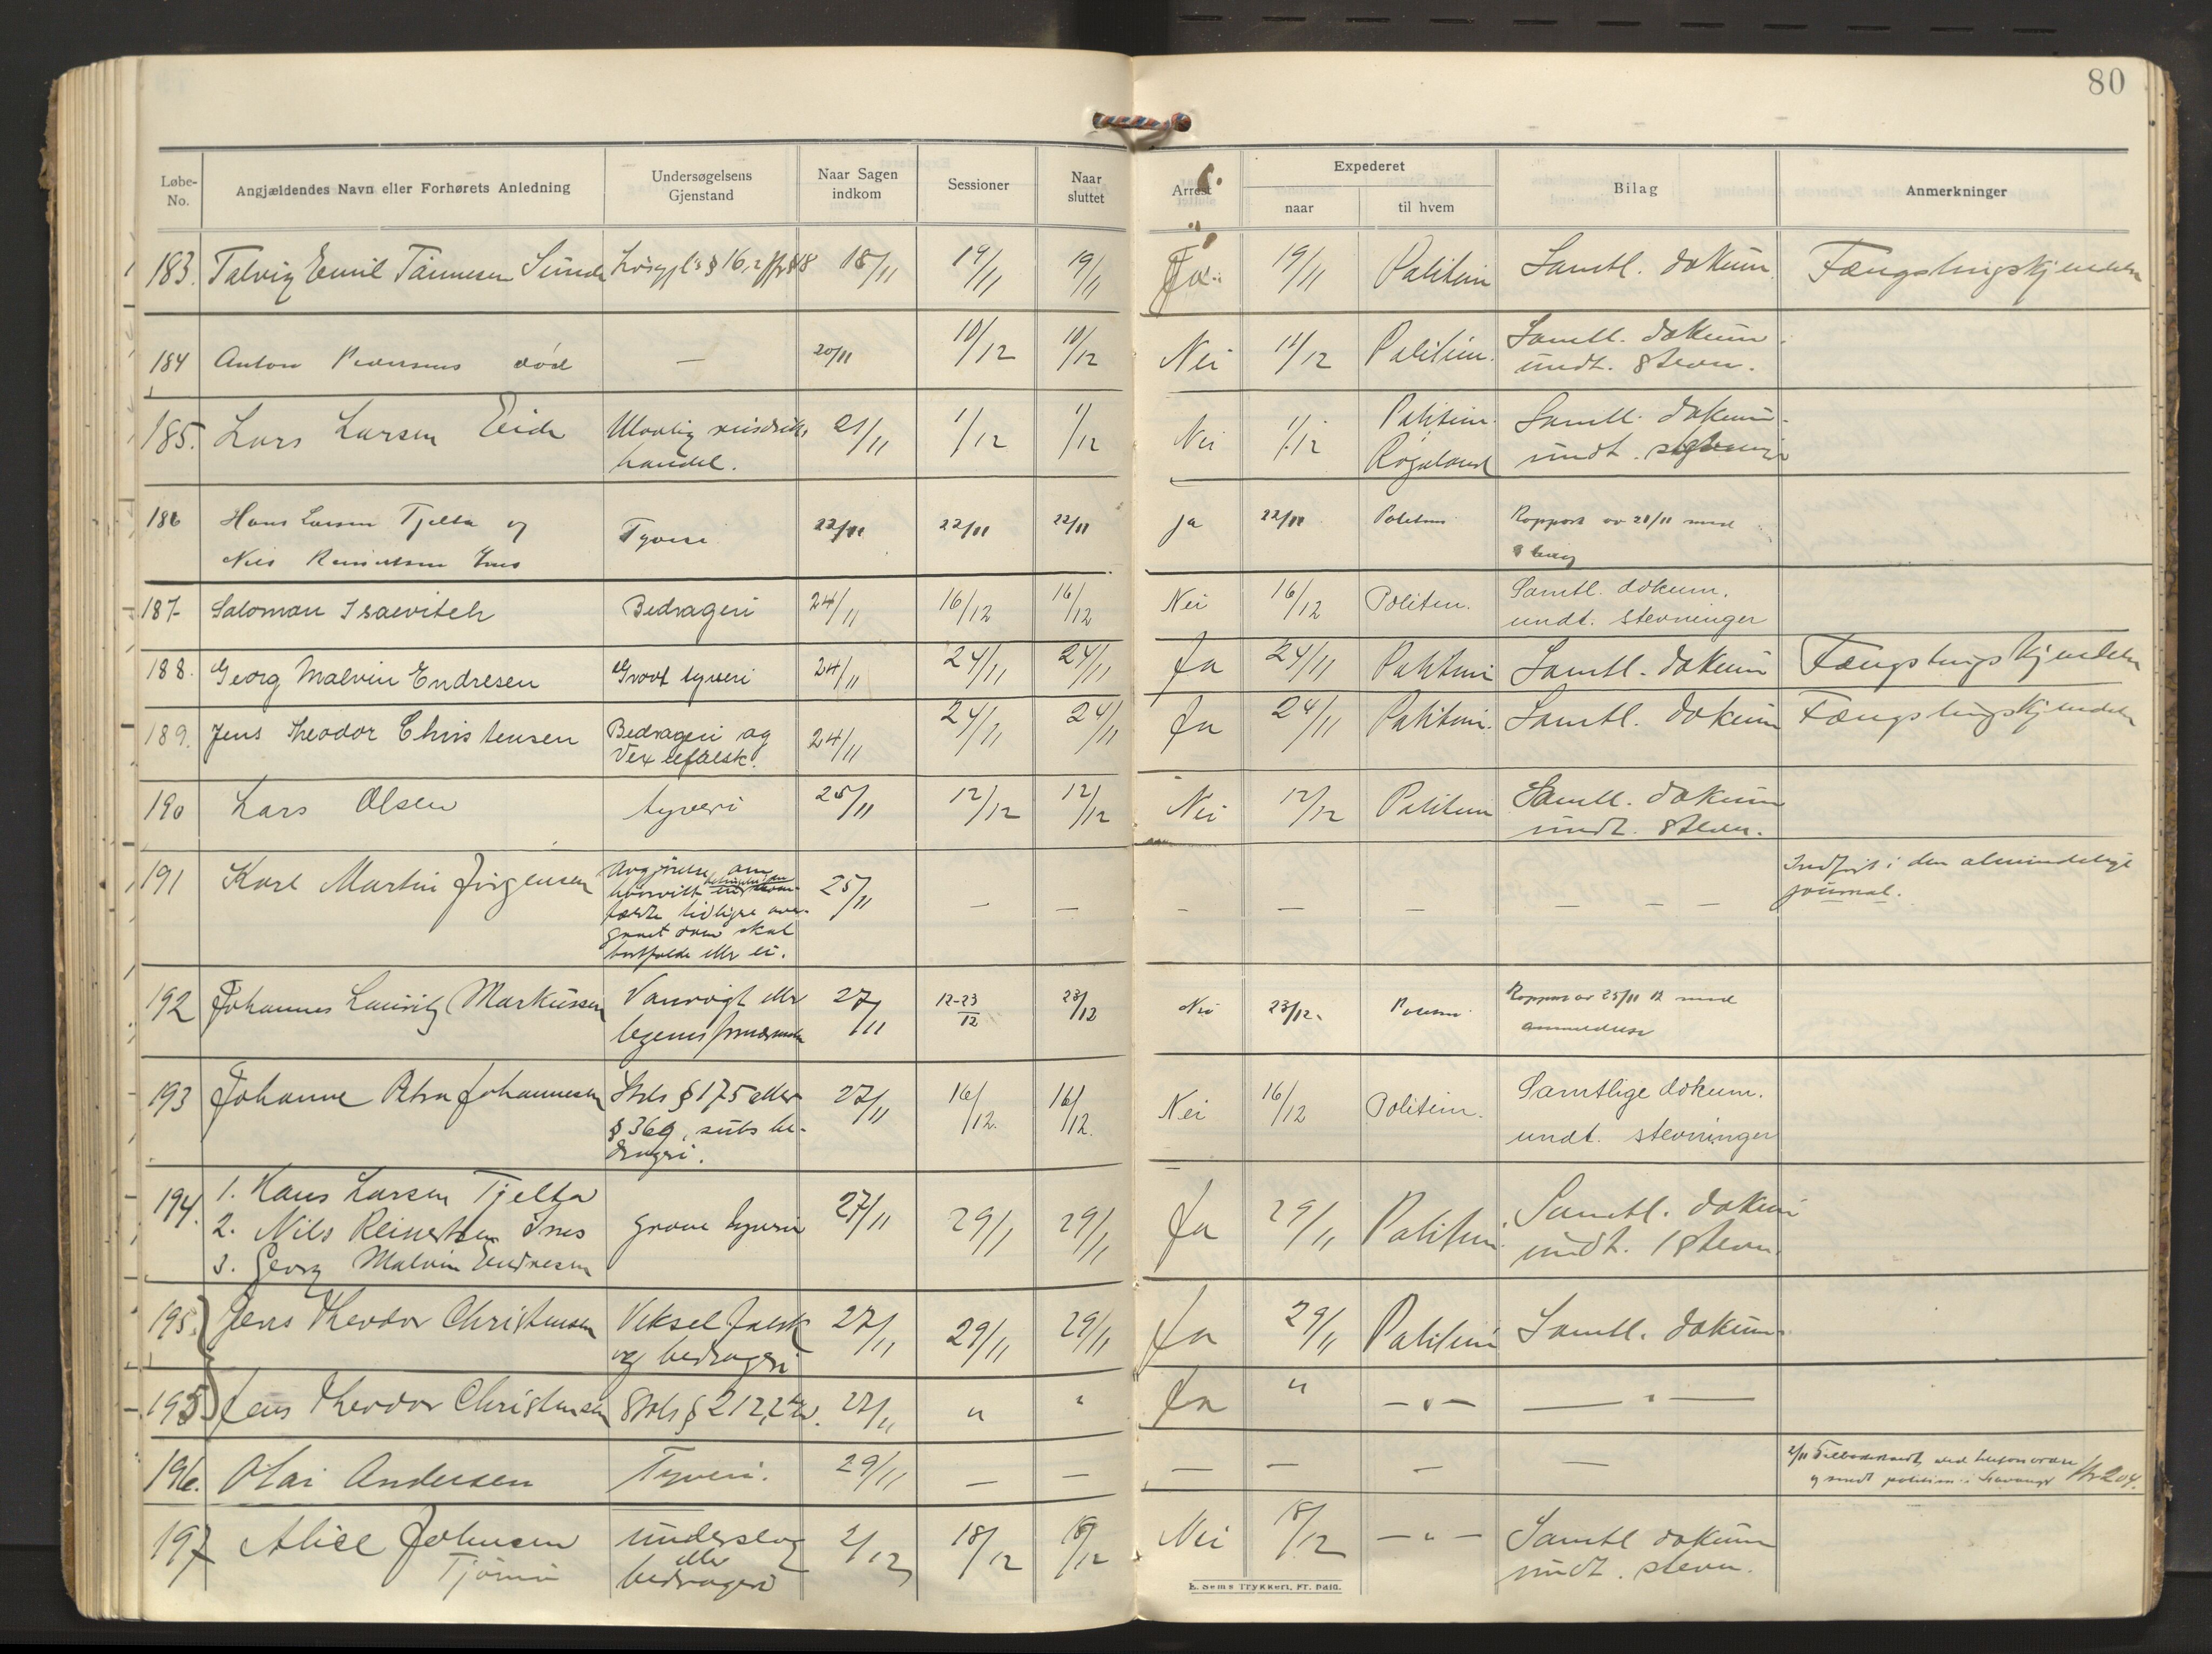 80
Løbe-No. Angjældendes Navn eller Forhørets Anledning Undersøgelsens Gjenstand Naar Sagen indkom Sessioner Naar sluttet Arrest Expederet naar til hvem Bilag Anmerkninger
183. Talvig Emil Tønnesen Sunde Løsgjl's § 16, 18 18/11 19/11 19/11 Ja 19/11 Politiin Samtl. dokum. Fængslingskjendelse
184 Anton Pedersens død — 20/11 10/12 10/12 Nei 11/12 Politiin. Samtl. dokum.
undt. stevn.
185. Lars Larsen Eide Ulovlig rusdrik- 21/11 1/12 1/12 Nei 1/12 Politiin. Samtl. dokum.
handel. Rogaland undt. stevninger
186 Hans Larsen Tjelta og Tyveri 22/11 22/11 22/11 Ja 22/11 Politiin Rapport av 21/11 med
Nils Reinertsen Ims 8 bilag
187 Saloman Isaevitch Bedrageri 24/11 16/12 16/12 Nei 16/12 Politiin. Samtl. dokum.
undt. stevninger
188. Georg Malvin Endresen Grovt tyveri 24/11 24/11 24/11 Ja 24/11 Politiin Samtl. dokum Fængslingskjendelse
189. Jens Theodor Christensen Bedrageri og 24/11 24/11 24/11 Ja 24/11 Politiin. Samtl. dokum Fængslingskjendelse
Vexelfalsk.
190 Lars Olsen tyveri 25/11 12/12 12/12 Nei 12/12 Politiin Samtl. dokum
undt. stevn.
191 Karl Martin Jørgensen Avgjørelse om 25/11 — — — — — — — — Indført i den almindelige
hvorvidt journal.
tidligere
dom skal
bortfalde eller ei.
192 Johannes Lauritz Markussen Vanrøgt eller 27/11 12-23/12 23/12 Nei 23/12. Politiin Rapport av 25/11 12 med
legemsfornærmelse anmeldelse
193 Johanne Petra Johannesen Strls § 175 eller 27/11 16/12. 16/12. Nei 16/12 Politiin. Samtlige dokum.
§ 369, subs be- undt. stevninger
drageri.
194. 1. Hans Larsen Tjelta grove tyverier 27/11 29/11 29/11 Ja 29/11 Politiin. Samtl. dokum
2. Nils Reinertsen Ims undt. 1 stevn.
3. Georg Malvin Endresen
195. Jens Theodor Christensen Veksel falsk 27/11 29/11 29/11 Ja 29/11 Politiin Samtl. dokum.
og bedrageri
195 Jens Theodor Christensen Strls § 212, 2 27/11 " " Ja " — " — — " —
196. Olai Andersen Tyveri. 29/11 — — — — — — 2/11 ved telefonordre
og sendt politiin i Stavanger Nr 204.
197 Alice Johnsen underslag 2/12 18/12 18/12 Nei 18/12 — " — Samtl dokum
Tjørn eller undt. stevn.
bedrageri
E. Sems Trykkeri, Fr. hald.